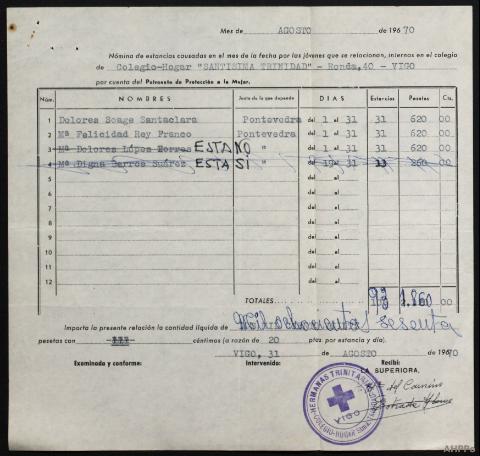 Mes de AGOSTO de 1967 70
Nómina de estancias causadas en el mes de la fecha por las jóvenes que se relacionan, internas en el colegio
de Colegio-Hogar "SANTISIMA TRINIDAD" - Ronda, 40 - VIGO
por cuenta del Patronato de Protección a la Mujer.
Núm. NOMBRES Junta de la que depende DIAS Estancias Pesetas Cts.
1 Dolores Soage Santaclara Pontevedra del 1 al 31 31 620 00
2 Mª Felicidad Rey Franco Pontevedra del 1 al 31 31 620 00
3 Mª Dolores López Torres ESTA NO " del 1 al 31 31 620 00
4 Mª Digna Barros Suárez ESTA SI " del 19 al 31 13 260 00
5 del al
6 del al
7 del al
8 del al
9 del al
10 del al
11 del al
12 del al
TOTALES 93 1.860 00
Importa la presente relación la cantidad líquida de Mil ochocientas sesenta
pesetas con céntimos (a razón de 20 ptas. por estancia y día).
VIGO, 31 de AGOSTO de 1967 70
Examinado y conforme: Intervenido: Recibí:
LA SUPERIORA,
HERMANAS TRINITARIAS
COLEGIO-HOGAR
VIGO
AHPPo